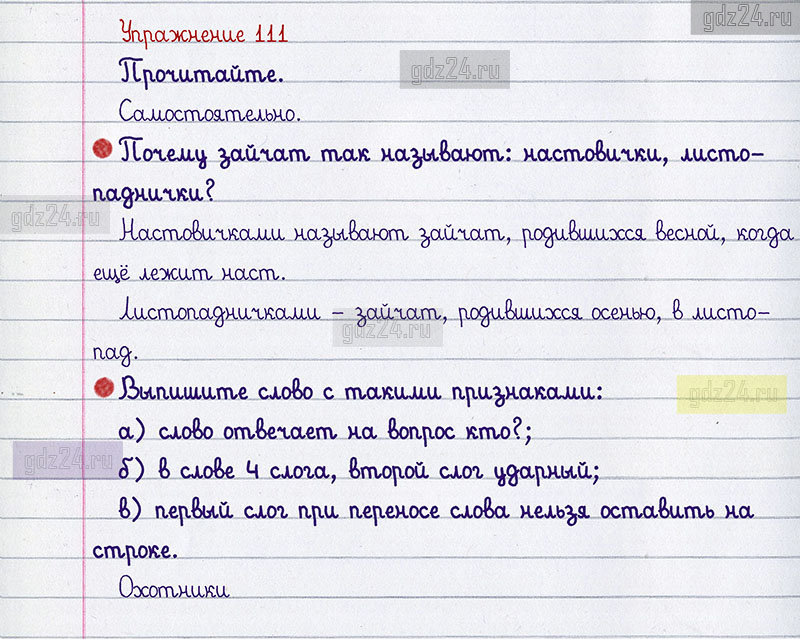 gdz24.ru
Упражнение 111
Прочитайте.
gdz24.ru
Самостоятельно.
Почему зайчат так называют: настовички, листо-
паднички?
gdz24.ru
Настовичками называют зайчат, родившихся весной, когда
ещё лежит наст.
Листопадничками – зайчат, родившихся осенью, в листо-
gdz24.ru
пад.
Выпишите слово с такими признаками:
gdz24.ru
а) слово отвечает на вопрос кто?;
gdz24.ru
б) в слове 4 слога, второй слог ударный;
в) первый слог при переносе слова нельзя оставить на
строке.
Охотники